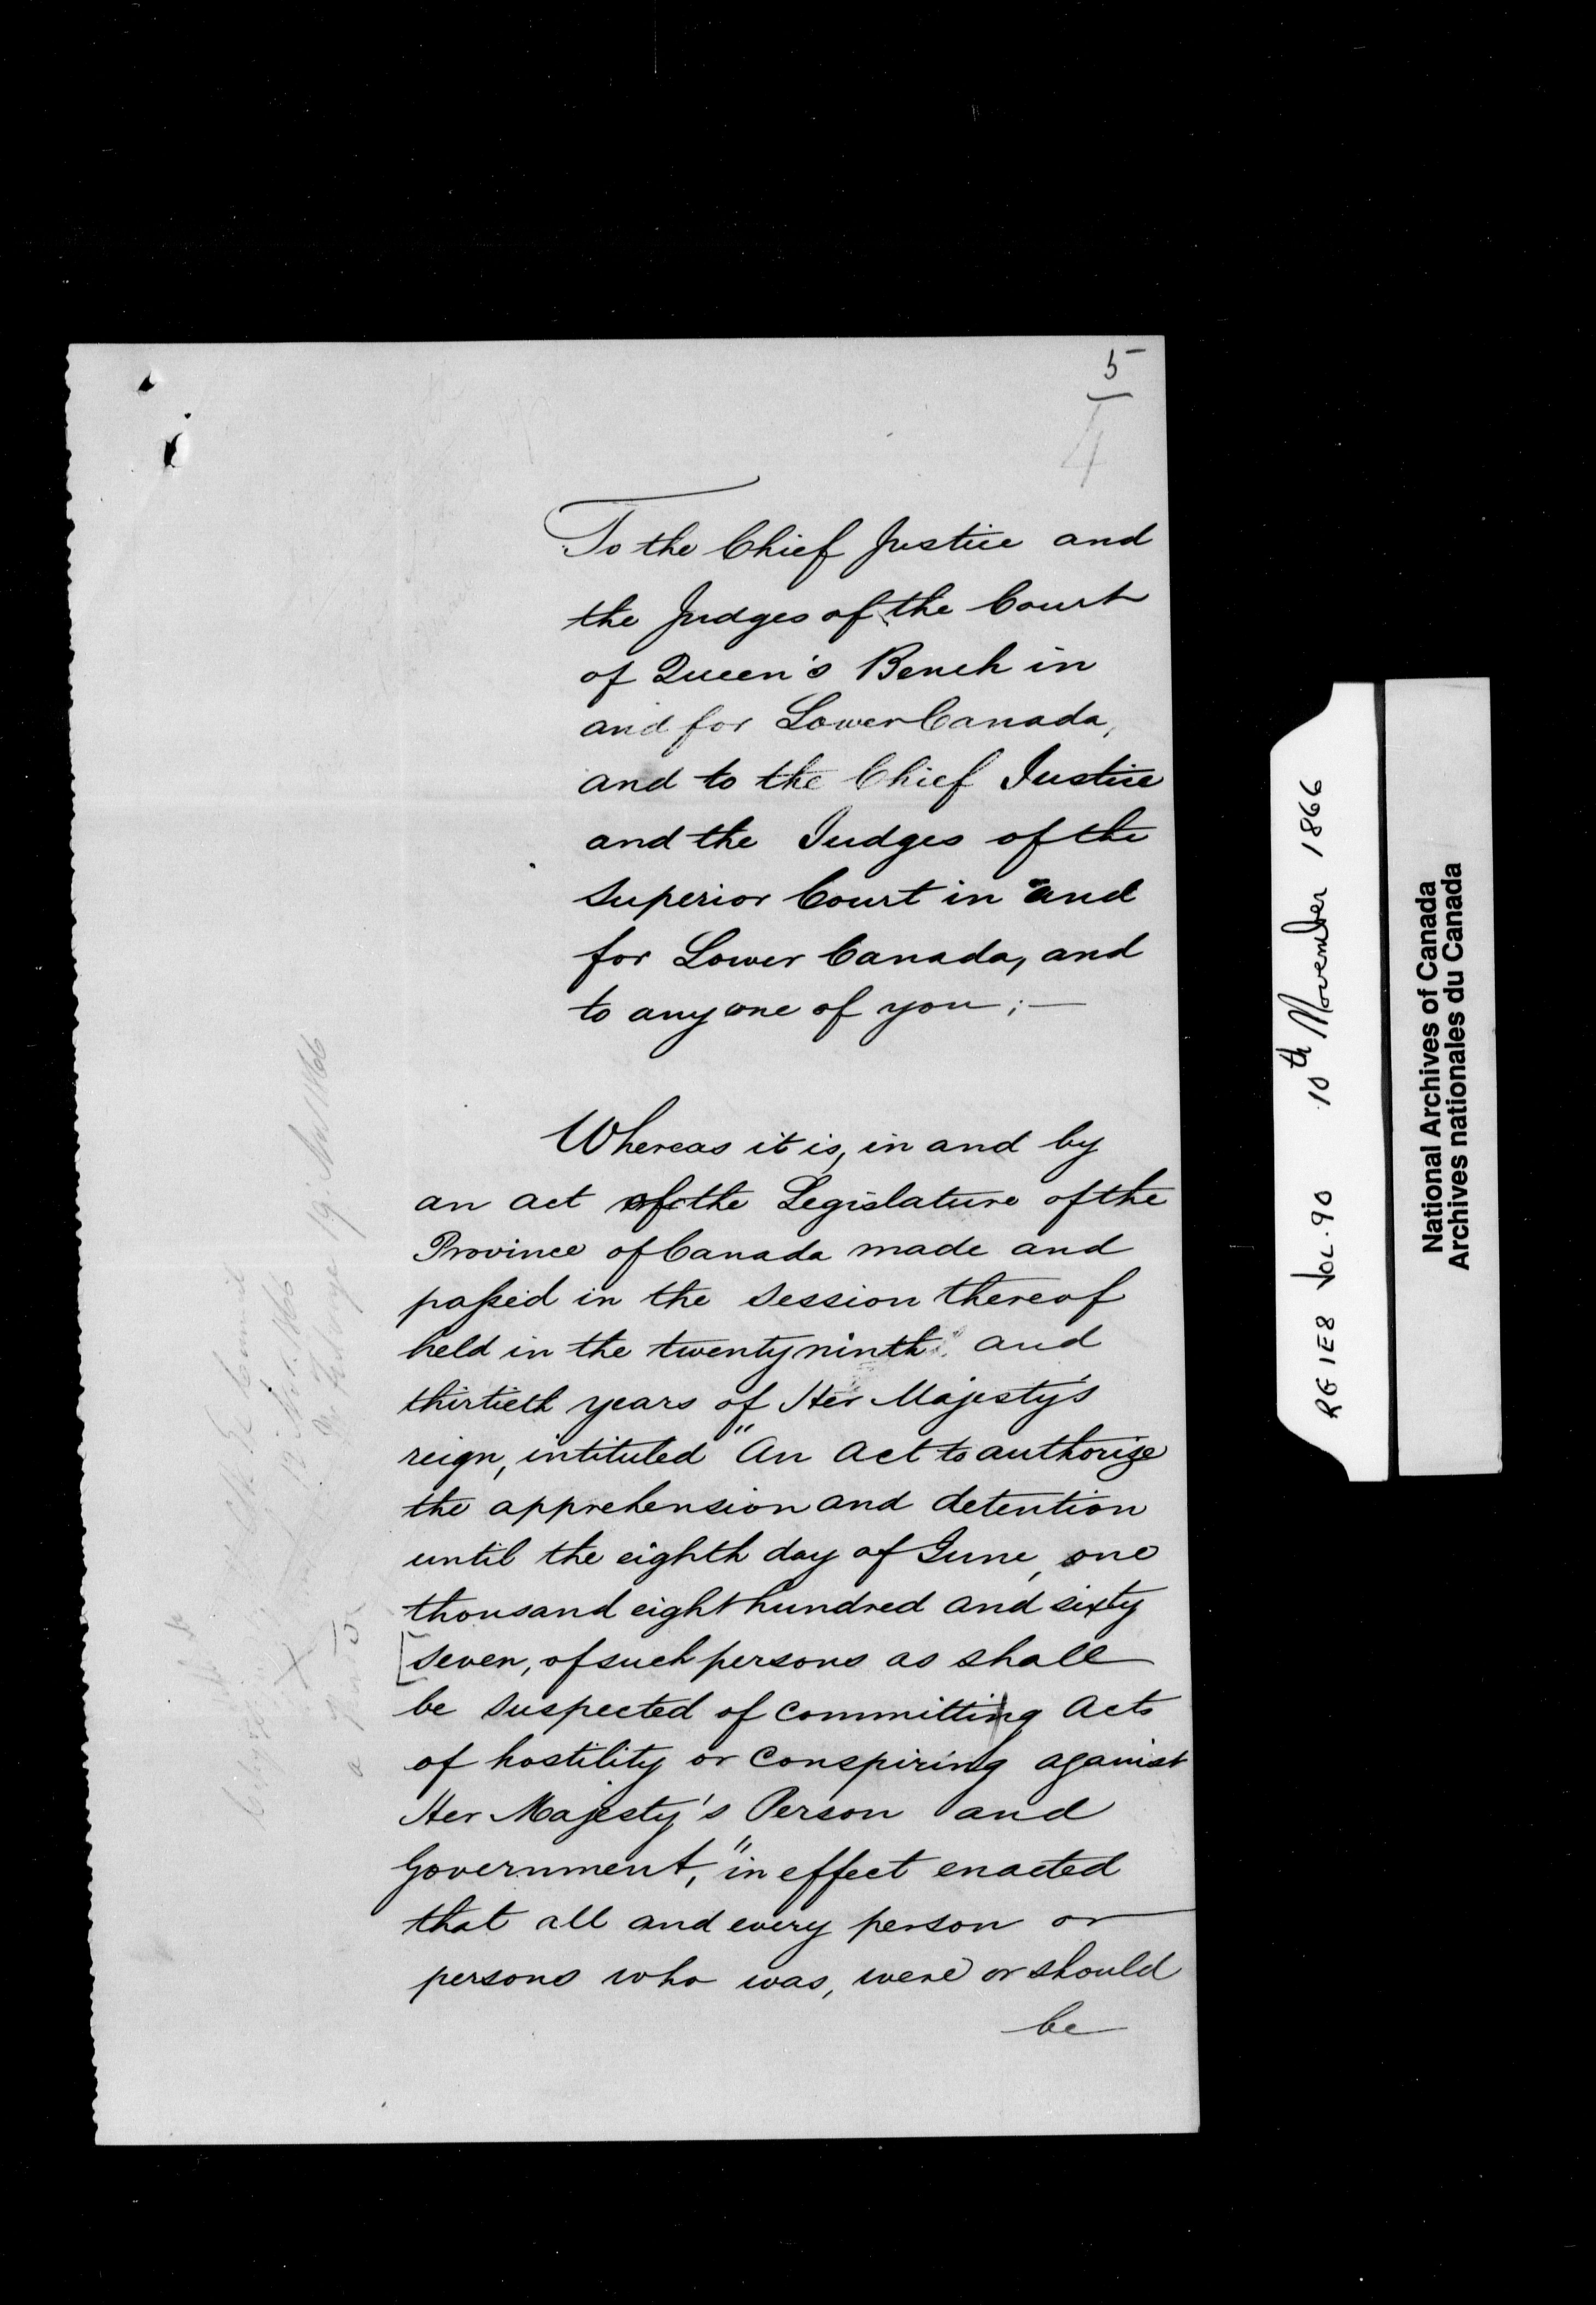 5
4
To the Chief Justice and
the Judges of the Court
of Queen's Bench in
and for Lower Canada,
and to the Chief Justice
and the Judges of the
Superior Court in and
for Lower Canada, and
to any one of you; —
Whereas it is, in and by
an act of the Legislature of the
Province of Canada made and
passed in the Session thereof
held in the twenty ninth and
thirtieth years of Her Majesty's
reign, intituled "An Act to authorize
the apprehension and detention
until the eighth day of June, one
thousand eight hundred and sixty
[seven, of such persons as shall
be suspected of committing Acts
of hostility or Conspiring against
Her Majesty's Person and
Government," in effect enacted
that all and every person or
persons who was, were or should
be
19 1866
RG 1E8 VOL.90 10th November 1866
National Archives of Canada
Archives nationales du Canada